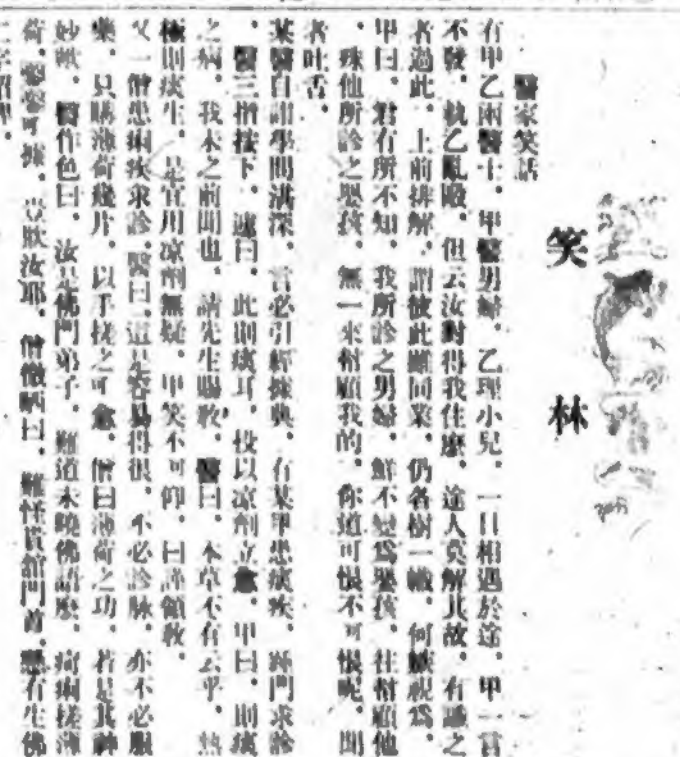 笑林
醫家笑話
有甲乙兩醫士。甲醫男婦。乙理小兒。一日相遇於途。甲一言
不發。執乙亂毆。但云汝對得我住麽。途人莫解其故。有識之
者過此。上前排解。謂彼此雖同業。仍各樹一幟。何嫉視為。
甲曰。君有所不知。我所診之男婦。鮮不變為嬰孩。往惠顧他
。殊他所診之嬰孩。無一來惠顧我的。你道可恨不可恨呢。聞
者吐舌。
某醫自詡學問淵深。言必引經據典。有某甲患痰疾。踵門求診
。醫三指按下。遽曰。此則痰耳。投以凉劑立愈。甲曰。則痰
之病。我未之前聞也。請先生賜教。醫曰。本草不有云乎。熱
極則痰生。是宜用凉劑無疑。甲笑不可仰。曰謹領教。
又一僧患痢疾求診。醫曰。這是容易得很。不必診脉。亦不必服
藥。只購薄荷幾片。以手搓之可愈。僧曰薄荷之功。若是其神
妙歟。醫作色曰。汝是佛門弟子。難道未曉佛語麽。痢搓薄
荷。可據。豈欺汝耶。僧曰。難怪貴舘門首。懸有生佛
二字招牌。